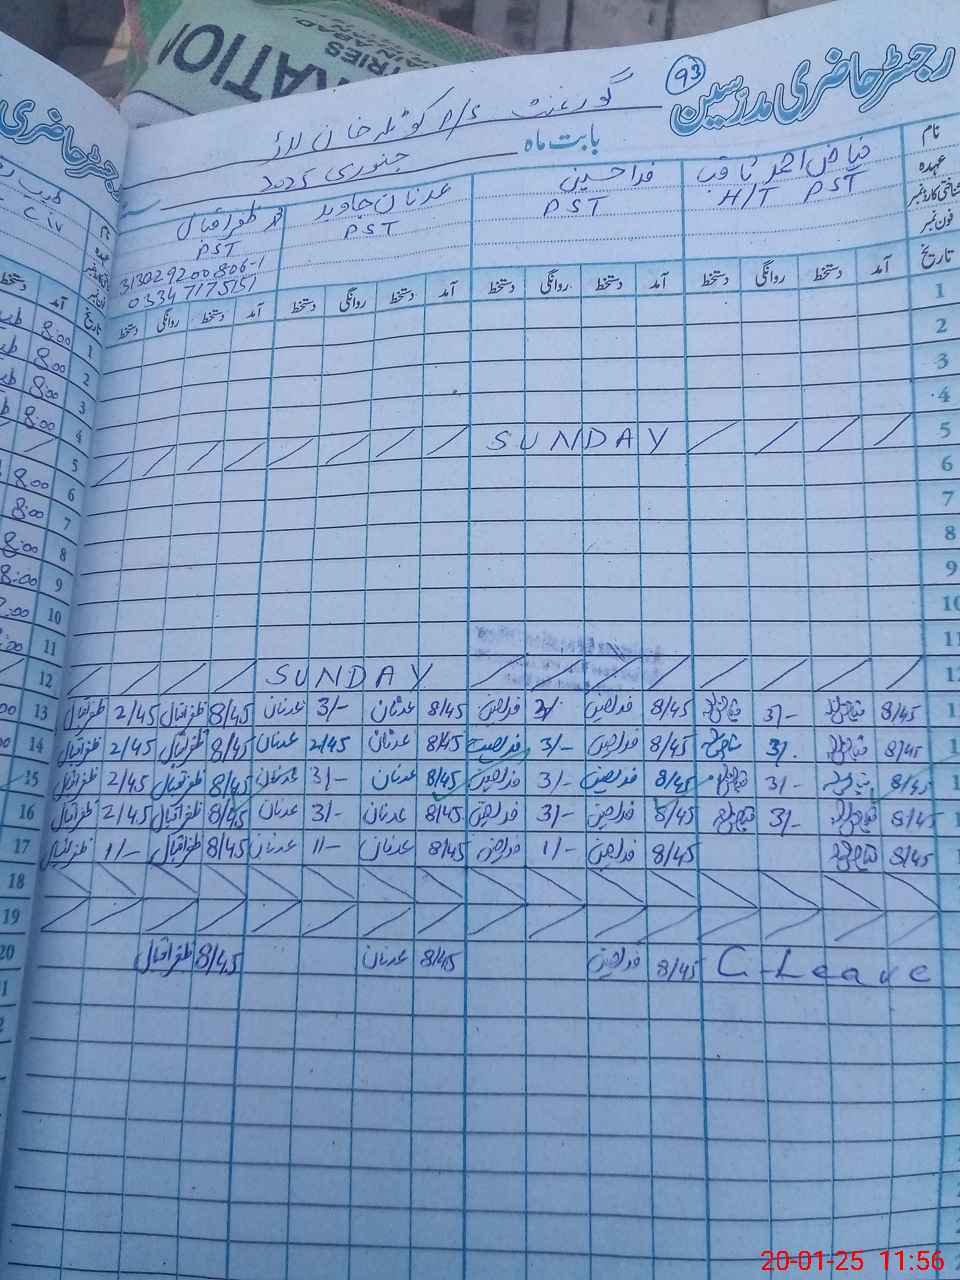 رجسٹر حاضری مدرسین
93
گورنمنٹ P/S کوٹلہ خان لاڑ
بابت ماہ جنوری 2025
نام فیاض احمد ثاقب فدا حسین عدنان جاوید ظفر اقبال
عہدہ H/T PST PST PST PST
شناختی کارڈ نمبر 313029200806-1
فون نمبر 03347175151
تاریخ آمد دستخط روانگی دستخط آمد دستخط روانگی دستخط آمد دستخط روانگی دستخط آمد دستخط روانگی دستخط
1
2
3
4
5 SUNDAY
6
7
8
9
10
11
12 SUNDAY
13 8/45 3/- 8/45 فدا حسین فدا حسین 8/45 عدنان 3/- عدنان 8/45 ظفر اقبال 2/45 ظفر اقبال
14 8/45 3/- 8/45 فدا حسین 3/- فدا حسین 8/45 عدنان 2/45 عدنان 8/45 ظفر اقبال 2/45 ظفر اقبال
15 8/45 3/- 8/45 فدا حسین 3/- فدا حسین 8/45 عدنان 3/- عدنان 8/45 ظفر اقبال 2/45 ظفر اقبال
16 8/45 3/- 8/45 فدا حسین 3/- فدا حسین 8/45 عدنان 3/- عدنان 8/45 ظفر اقبال 2/45 ظفر اقبال
17 8/45 8/45 فدا حسین 1/- فدا حسین 8/45 عدنان 1/- عدنان 8/45 ظفر اقبال 1/- ظفر اقبال
18
19
20 C-Leave 8/45 فدا حسین 8/45 عدنان 8/45 ظفر اقبال
رجسٹر حاضری
8:00
8:00
8:00
8:00
8:00
8:00
8:00
8:00
20-01-25 11:56